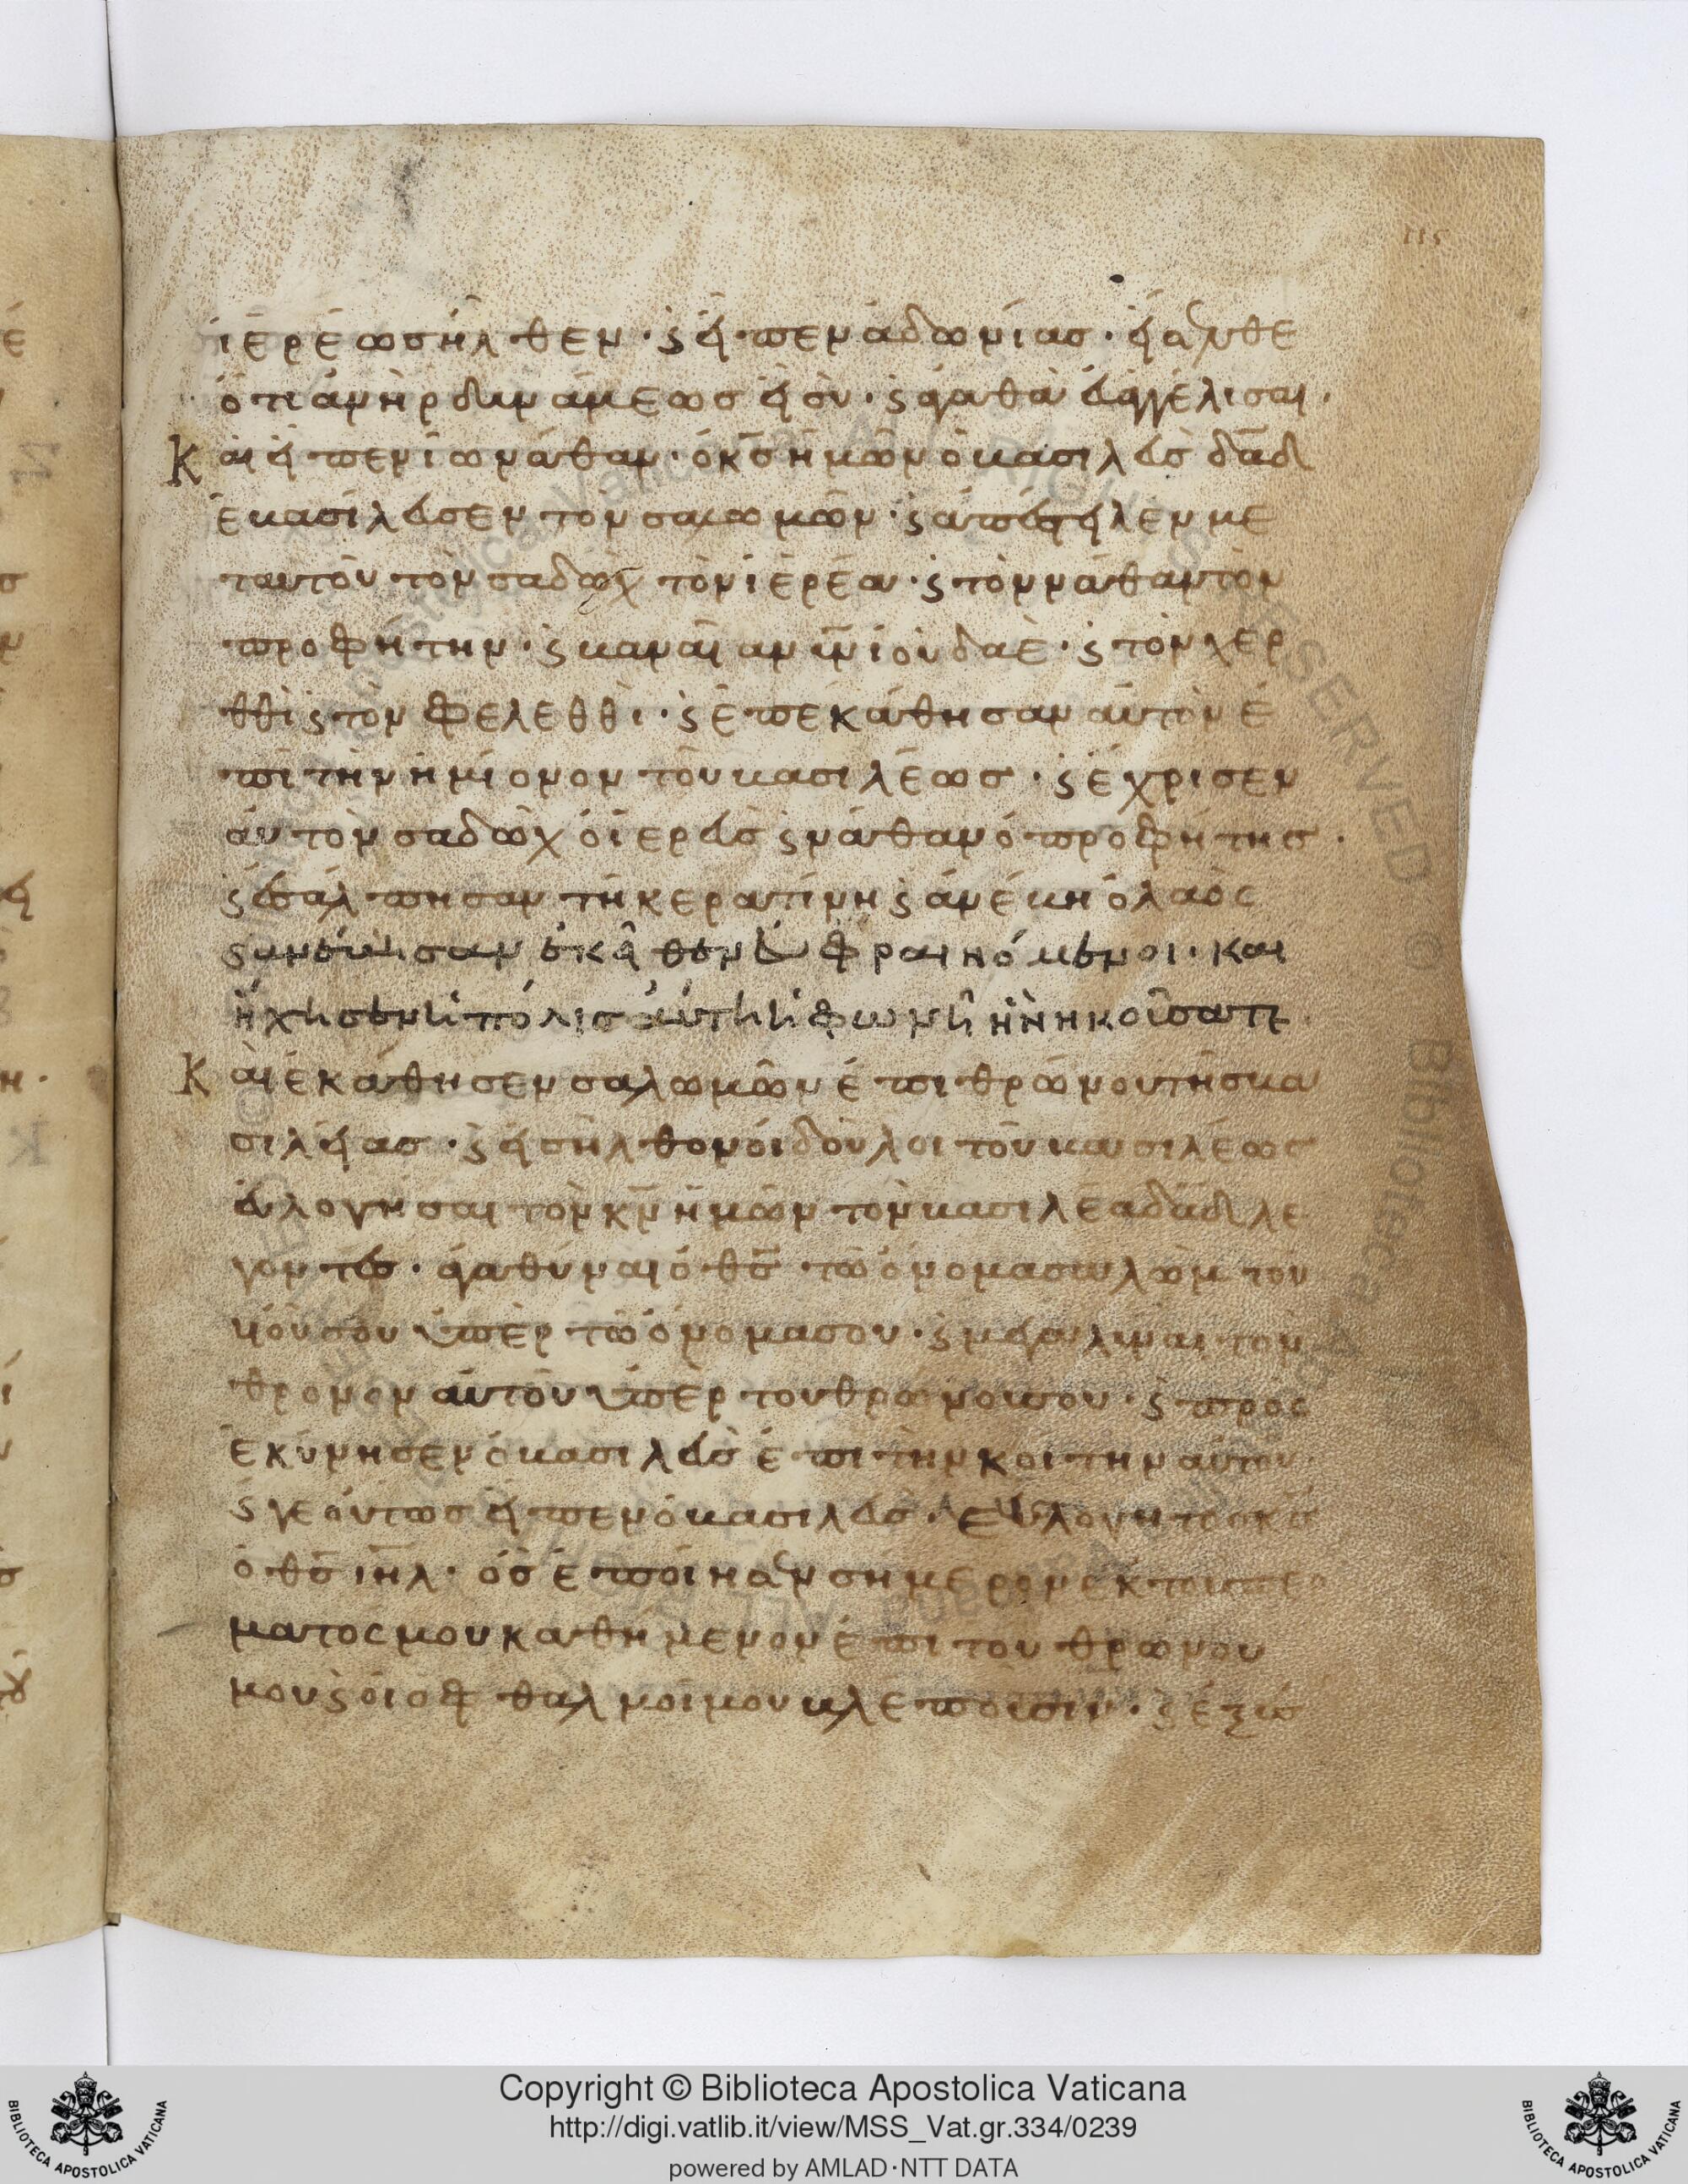 115
ἱερέως ἦλθεν· ϛ εἶπεν ἀδωνίας· εἴσελθε
ὅτι ἀνὴρ δυνάμεως εἶ σύ· ϛ ἀγαθὰ εὐαγγέλισαι·
Καὶ εἶπεν ἰωνάθαν· ὁ κ̅ς̅ ἡμῶν ὁ βασιλεὺς δα̅δ
ἐβασίλευσεν τὸν σαλωμῶν· ϛ ἀπέστειλεν με
τ αυτοῦ τὸν σαδὼχ τὸν ἱερέα· ϛ τὸν νάθαν τὸν
προφήτην· ϛ βαναίαν υι̅ν ἰούδαὲ· ϛ τὸν χερ
θθὶ ϛ τὸν φελεθθὶ· ϛ ἐπεκάθησαν αὐτὸν ἐ
πὶ τὴν ἡμίονον τοῦ βασιλέως· ϛ ἔχρισεν
αὐτὸν σαδὼχ ὁ ἱερεὺς ϛ νάθαν ὁ προφήτης·
ϛ ἐσάλπησαν τῆ κερατίνη ϛ ἀνέβη ὁ λαὸς
ϛ ἀνέβησαν ἐκεῖθεν εὐφραινόμενοι· και
ἤχησεν ἡ πόλις αὐτὴ ἡ φωνὴ ἣν ἠκούσατε·
Καὶ ἐκάθησεν σαλωμῶν ἐπι θρώνου τῆς βα
σιλείας· ϛ εἰσῆλθον οἱ δοῦλοι τοῦ βασιλέως
εὐλογῆσαι τὸν κ̅ν̅ ἡμῶν τὸν βασιλέα δα̅δ λε
γοντες· ἀγαθύναι ὁ θ̅ς̅ τὼ ὄνομα σαλωμ τοῦ
υἱοῦ σου ὑπὲρ τὼ ὄνομα σου· ϛ μεγαλύναι τὸν
θρονον αὐτοῦ ὑπὲρ του θρώνου σου· ϛ προς
ἐκύνησεν ὁ βασιλεὺς ἐπὶ τὴν κοιτην αὐτου·
ϛ γε οὕτως εἶπεν ὁ βασιλεύς· Εὐλογητὸς κ̅ς̅
ὁ θ̅ς̅ ι̅η̅λ· ὃς ἐποίησεν σήμερον ἐκ του σπερ
ματος μου καθήμενον ἐπὶ του θρώνου
μου ϛ οἱ ὀφθαλμοί μου βλέπουσιν· ϛ
Copyright © Biblioteca Apostolica Vaticana
http://digi.vatlib.it/view/MSS_Vat.gr.334/0239
powered by AMLAD·NTT DATA
BIBLIOTECA APOSTOLICA VATICANA
BIBLIOTECA APOSTOLICA VATICANA